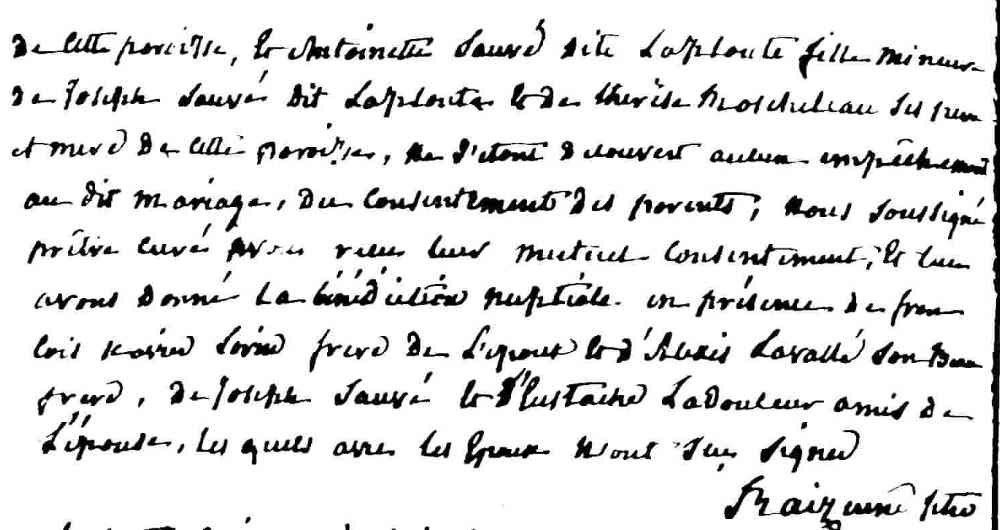 de cette paroisse, et Antoinette Sauvé dite Laplonte fille mineure
de Joseph Sauvé dit Laplonte et de therese ses pere
et mere de cette paroisse, ne s'etant decouvert aucun empêchement
au dit mariage, du consentement des parents, nous soussigné
prêtre curé avons reçu leur mutuel consentement, et leur
avons donné la bénédiction nuptiale en présence de fran
cois frere de l'epoux et d'Alexis Lavallé son Beau
frere, de Joseph Sauvé et d'Eustache Ladouleur amis de
l'épouse, les quels avec les Epoux n'ont sçu signer
ptre